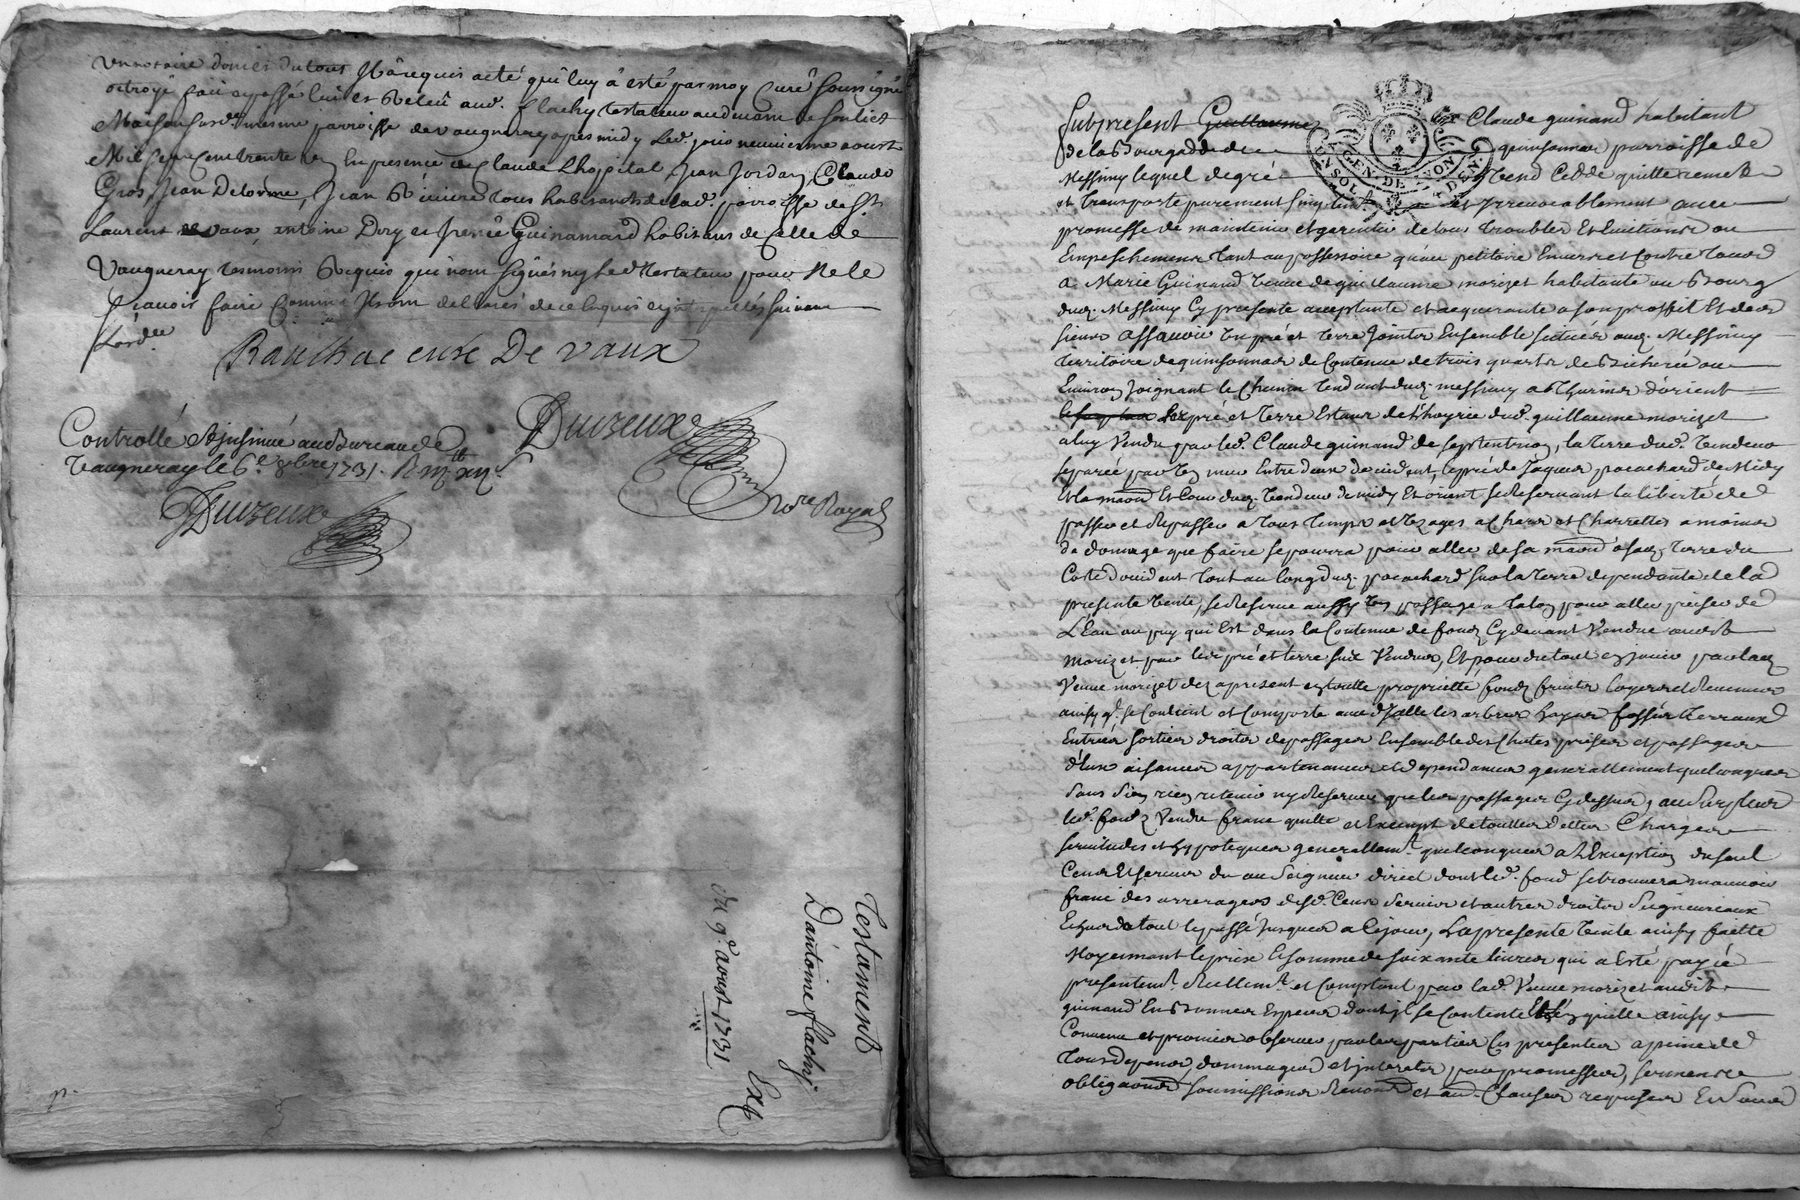 un notaire donies du tout Il a requis acte qui luy a esté par moy curé soussigné
octroyé fait et passé leu et releu aud. flachy testateur au
Maison sus.d. mesme parroisse de vaugneray apres midy le d. jour neuvieme aoust
Mil sept cent trente un En presence de Claude Lhopital Jean Jordan, Claude
Gros, Jean Delorme, Jean Riviere tous habitants de lad. parroisse de St
Laurent de vaux, antoine Dury et Guinamard habitans de Celle de
Vaugneray tesmoins Requis qui n'ont signés ny led. testateur pour ne le
scavoir faire Comme Ils ont declarés de ce Requis et suivant
L'ord.ce
Ranchac curé De vaux
Duizeux
Controllé Et Insinué au Bureau de
Vaugneray le 6.e 8bre 1731.
No.re Royal
Duizeux
Testament
D'antoine flachy
du 9.e aoust 1731
Ext
n.
Sut present Guillaume Claude guinand habitant
de la Bourgade de quinsonnas parroisse de
Messimy lequel de gré Vend Cedde quitte remet
GEN. DE LYON
UN SOL
et transporte purement et Irrevocablement avec
promesse de maintenir et garentir de tous troubles Et Evictions ou
Empeschement tant au possessoire qu'au petitoire Envers et Contre tous
a Marie Guinand Veuve de guillaume morizet habitante au Bourg
dud. Messimy Cy presente acceptante et acquerante a son proffit Et des
siens assavoir Un pré et terre Joints Ensemble scitués aud. Messimy
territoire de quinsonnas de Contenue de trois quarts de Bicherée ou
Environ Joignant le Chemin tendant dud. messimy a Thurins d'orient
pré et terre Estant de l'hoyrie dud. guillaume morizet
a luy Vendu par led. Claude guinand de septentrion, la terre dud. Vendeur
separée par Un mur Entre deux d'occident, le pré de Jaques pocachard de Midy
Et la maison Et Cour dud. Vendeur de midy Et orient se Reservant la liberté de
passer et Repasser a tous temps et Usages a Chars et Charrettes a moins
de domage que faire se pourra pour aller de sa maison a sad. terre du
Costé d'occident tout au long dud. pocachard sur la terre dependante de la
presente Vente, se Reserve aussy Un passage a talon pour aller puiser de
L'Eau au puy qui Est dans la Contenue de fond Cy devant Vendue audit
morizet par led. pré et terre susd. Vendus, Et pour du tout en jouir par lad.
Veuve morizet dez a present en toutte proprietté fondz fruits loyers et Revenus
ainsy q.l se Contient et Comporte avec d'Icelle les arbres hayes fossés terraux
Entrées sorties droits de passages Ensemble des Chutes prises et passages
d'Eaux aisances appartenances et dependances generallement quelconques
sans s'y rien retenir ny Reserver que les passages Cy dessus, au Surplus
led. fondz Vendu franc quitte et Exempt de touttes dettes Charges
servitudes et hypoteques generallem.t quelconques a L'Exception du seul
Cens Et servis du au Seigneur direct dont led. fond se trouvera mouvoir
franc des arrerages desd. Cens servis et autres droits Seigneuriaux
Echus de tout le passé Jusques a Ce jour, La presente Vente ainsy faitte
Moyennant le prix Et somme de soixante livres qui a Esté payée
presentem.t Reellem.t et Comptant par lad. Veuve morizet audit
guinand En Bonnes Especes dont il se Contente Et quitte ainsy
Convenu et promis observer par les parties Ces presentes a peine de
tous depens, dommages et interets, par promesses, sermens
obligations soumissions Renon.ons et au.s Clauses requises